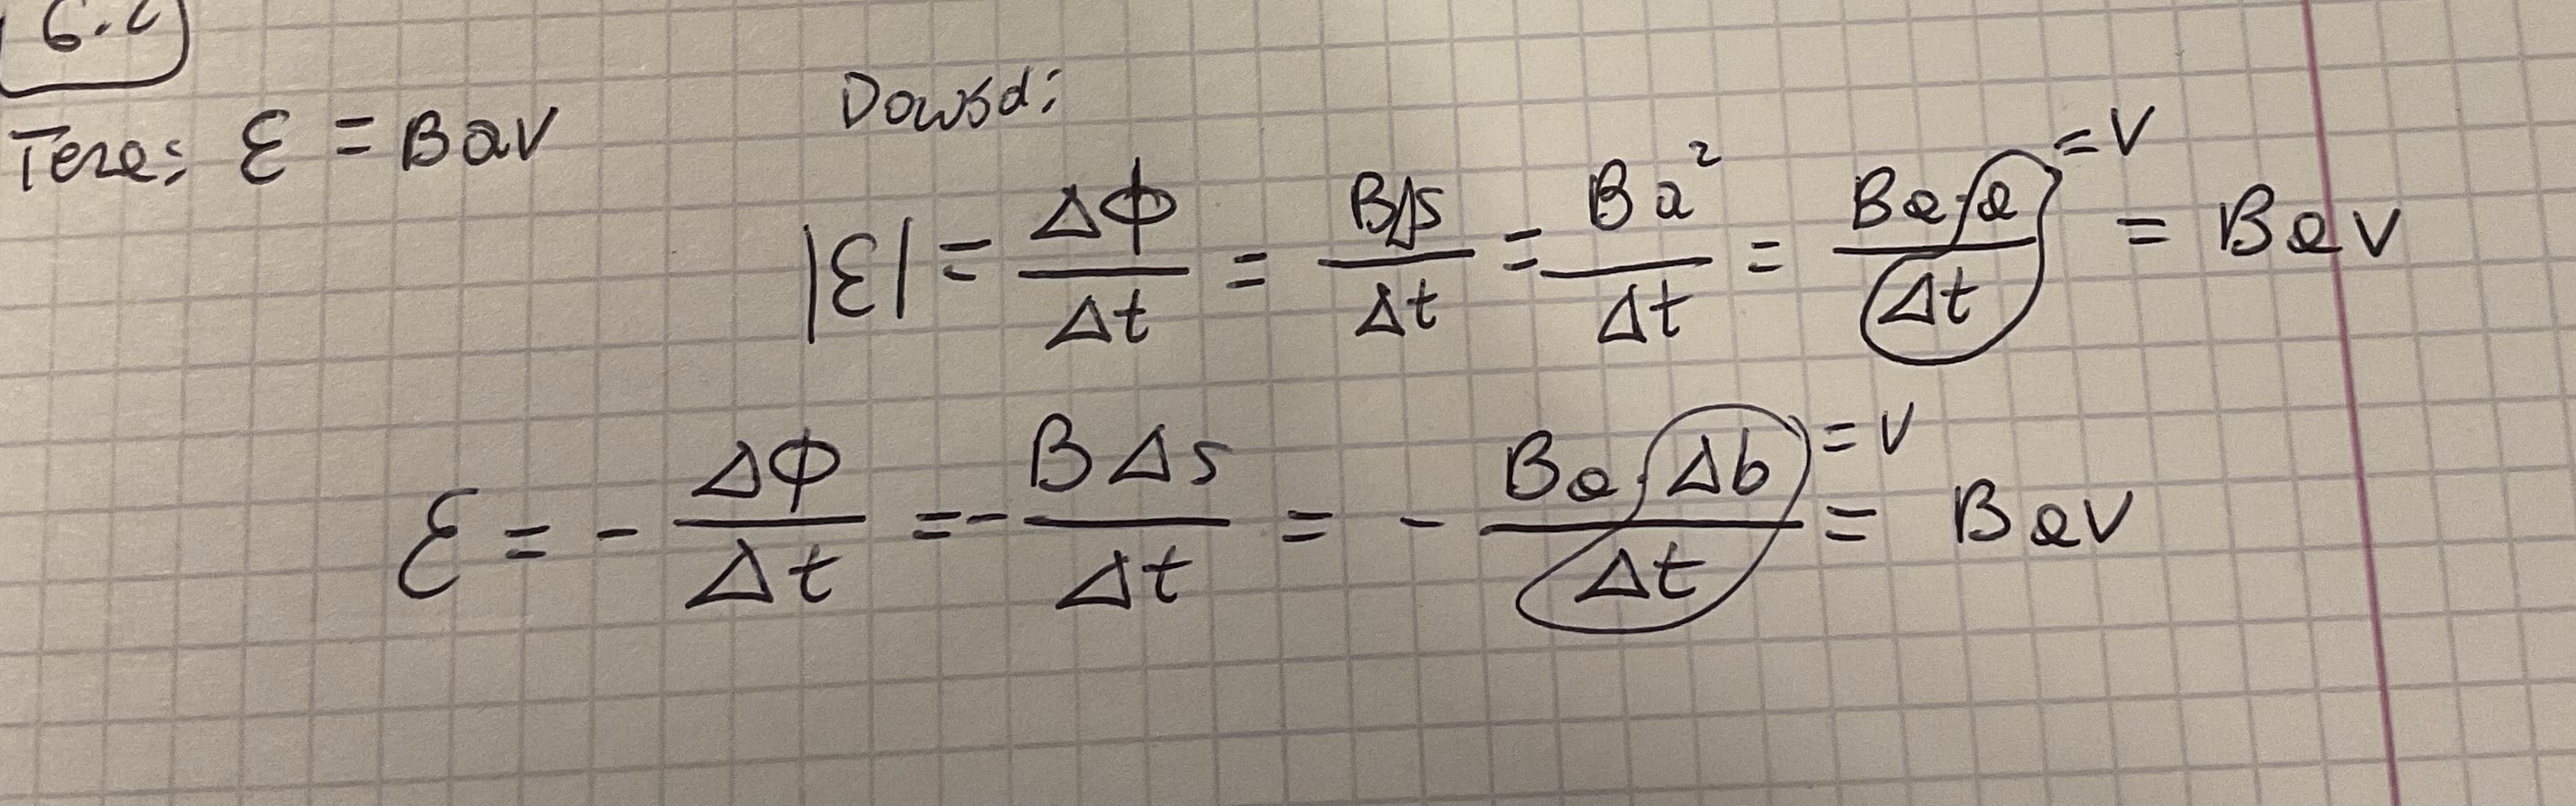 6.2
Teza: ε = Bav
Dowód:
|ε| = ΔΦ/Δt = BΔs/Δt = Ba²/Δt = Ba·a/Δt = v = Bav
ε = - ΔΦ/Δt = - BΔs/Δt = - Ba·Δb/Δt = v = Bav